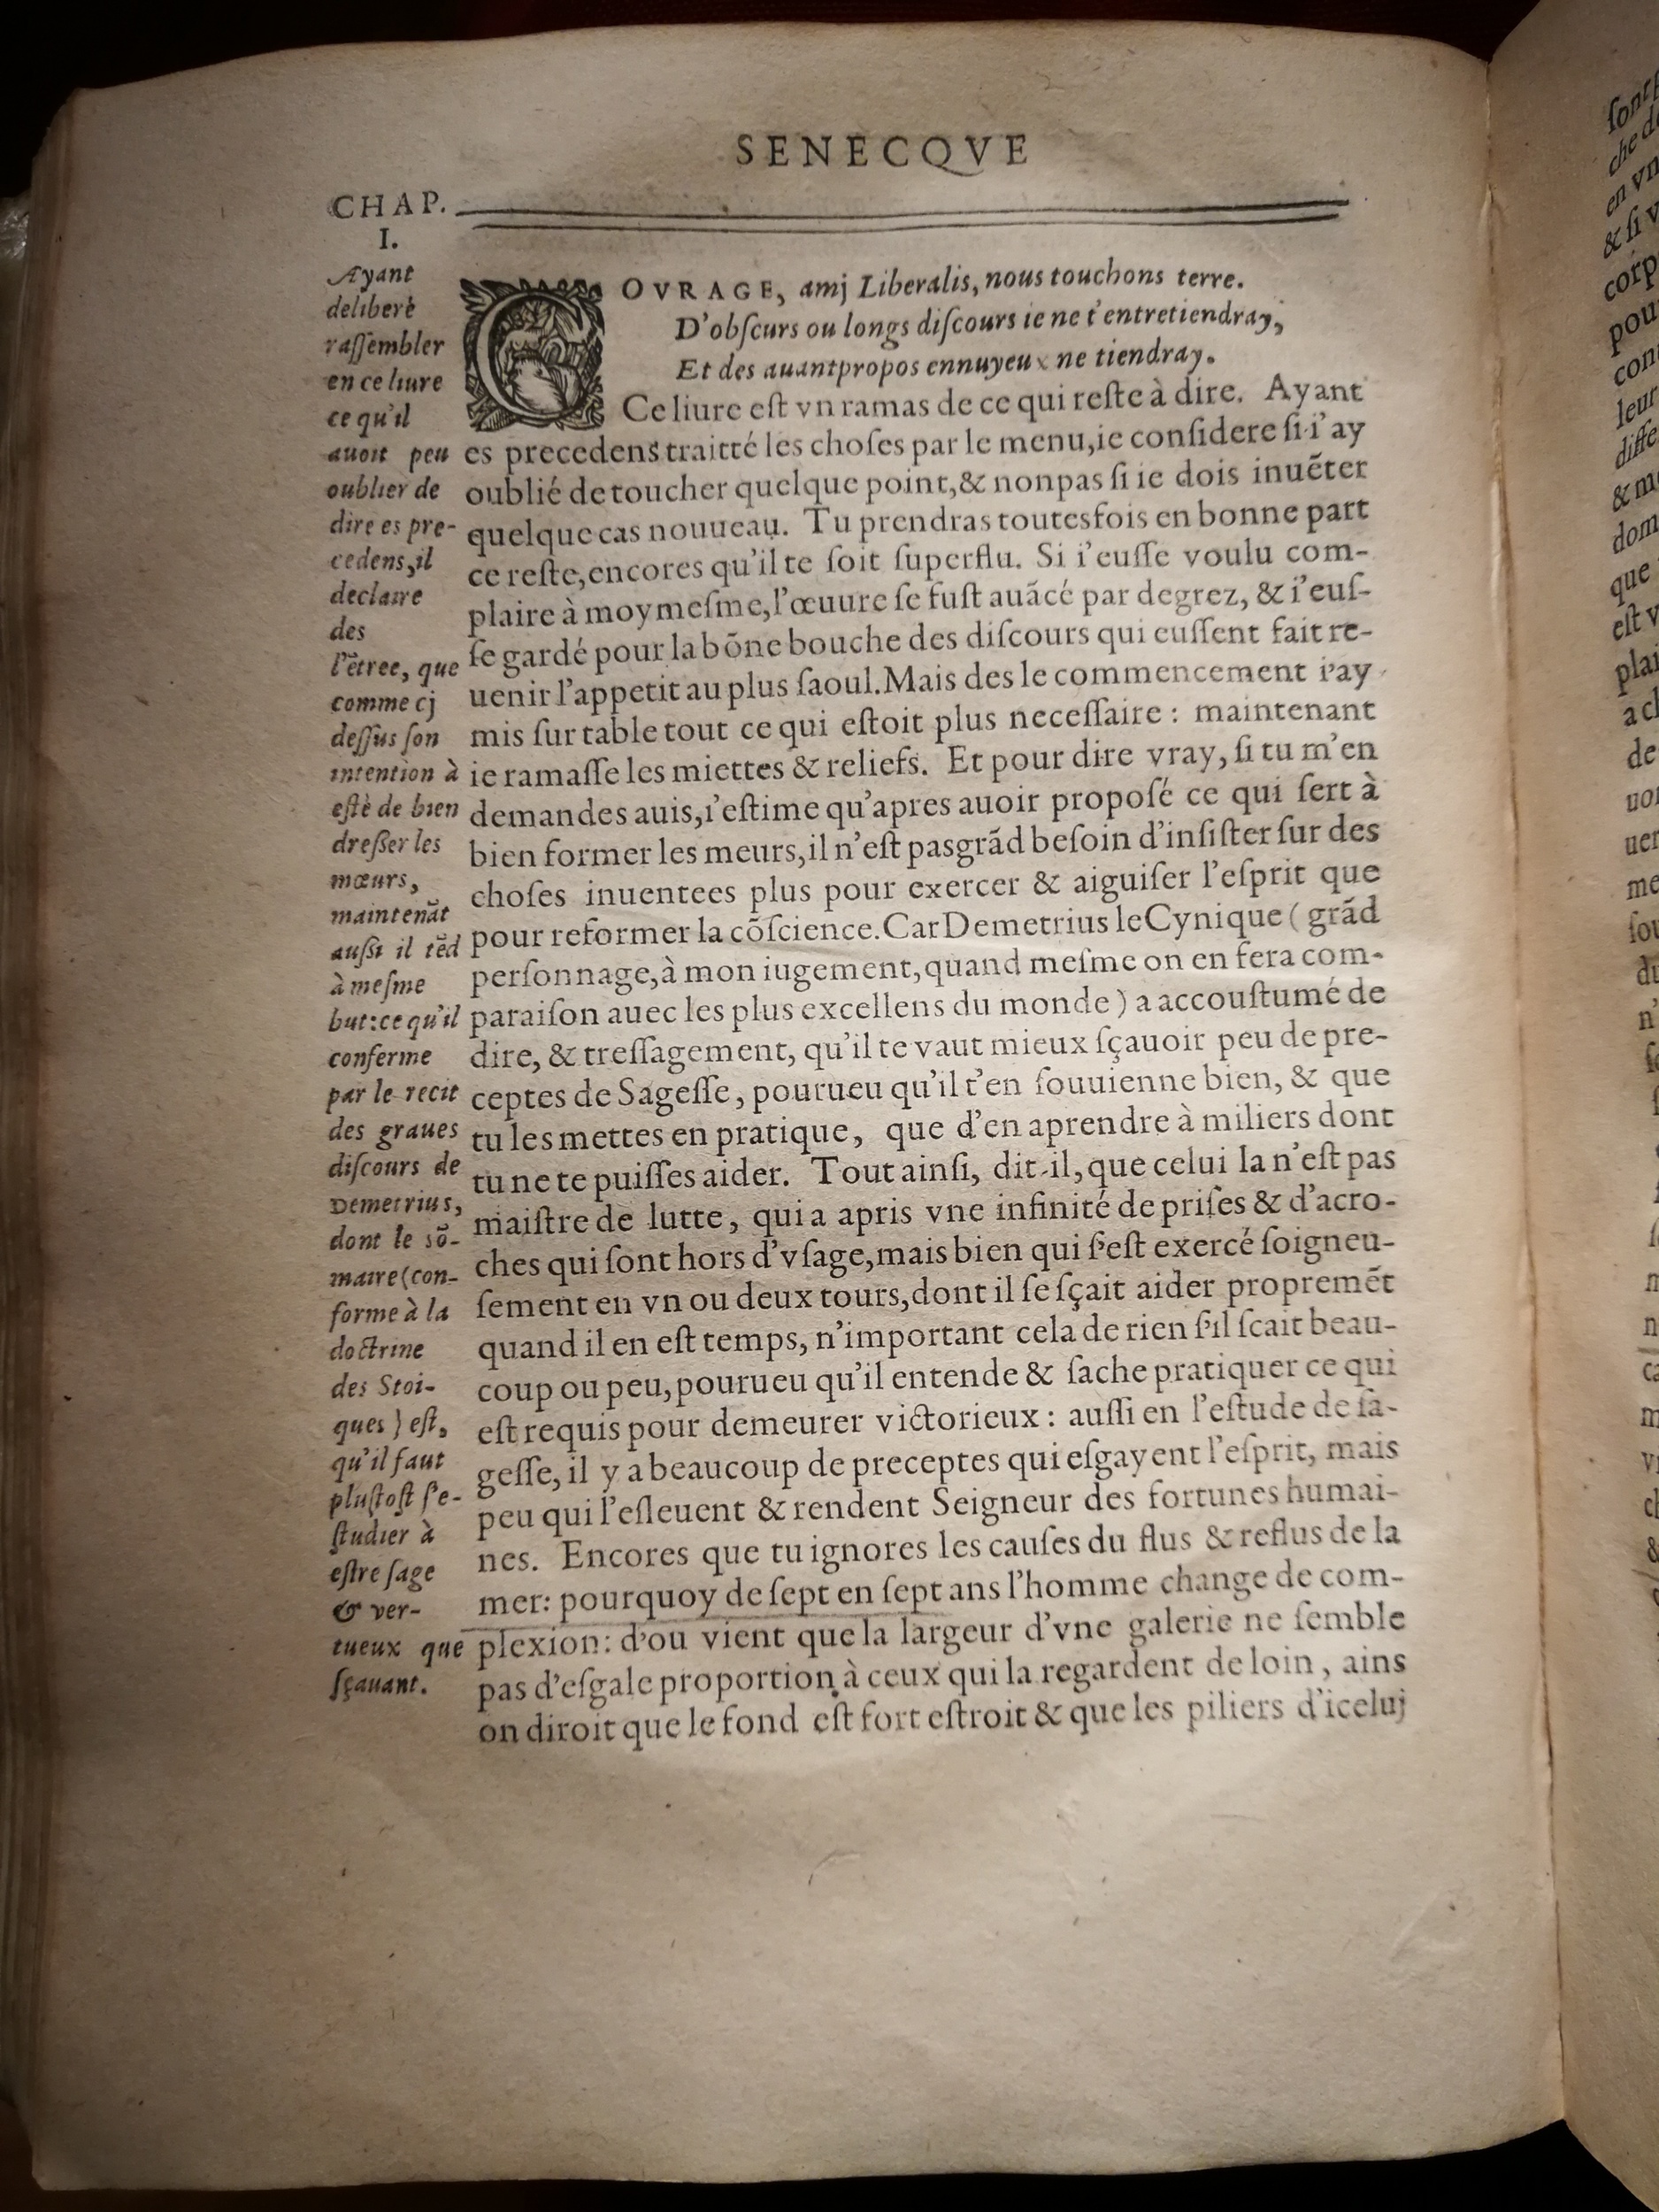 SENECQVE
CHAP.
I.
Ayant
deliberè
raſſembler
en ce liure
ce qu'il
auoit peu
oublier de
dire es pre-
cedens, il
declaire
des
l'ẽtree, que
comme cj
deſſus ſon
intention à
eſtè de bien
dreſſer les
mœurs,
maintenãt
auſſi il tẽd
à meſme
but: ce qu'il
conferme
par le recit
des graues
diſcours de
Demetrius,
dont le sõ-
maire (con-
forme à la
doctrine
des Stoi-
ques) eſt,
qu'il faut
pluſtoſt ſ'e-
ſtudier à
eſtre ſage
& ver-
tueux que
ſçauant.
COVRAGE, amj Liberalis, nous touchons terre.
D'obſcurs ou longs diſcours ie ne t'entretiendray,
Et des auantpropos ennuyeux ne tiendray.
Ce liure eſt vn ramas de ce qui reſte à dire. Ayant
es precedens traitté les choſes par le menu, ie conſidere ſi i'ay
oublié de toucher quelque point, & non pas ſi ie dois inuẽter
quelque cas nouueau. Tu prendras toutesfois en bonne part
ce reſte, encores qu'il te ſoit ſuperflu. Si i'euſſe voulu com-
plaire à moy meſme, l'œuure ſe fuſt auãcé par degrez, & i'euſ-
ſe gardé pour la bõne bouche des diſcours qui euſſent fait re-
uenir l'appetit au plus ſaoul. Mais des le commencement i'ay
mis ſur table tout ce qui eſtoit plus neceſſaire : maintenant
ie ramaſſe les miettes & reliefs. Et pour dire vray, ſi tu m'en
demandes auis, i'eſtime qu'apres auoir propoſé ce qui ſert à
bien former les meurs, il n'eſt pas grãd beſoin d'inſiſter ſur des
choſes inuentees plus pour exercer & aiguiſer l'eſprit que
pour reformer la cõſcience. Car Demetrius le Cynique ( grãd
perſonnage, à mon iugement, quand meſme on en fera com-
paraiſon auec les plus excellens du monde ) a accouſtumé de
dire, & treſſagement, qu'il te vaut mieux ſçauoir peu de pre-
ceptes de Sageſſe, pourueu qu'il t'en ſouuienne bien, & que
tu les mettes en pratique, que d'en aprendre à miliers dont
tu ne te puiſſes aider. Tout ainſi, dit-il, que celui la n'eſt pas
maiſtre de lutte, qui a apris vne infinité de priſes & d'acro-
ches qui ſont hors d'vſage, mais bien qui ſ'eſt exercé ſoigneu-
ſement en vn ou deux tours, dont il ſe ſçait aider propremẽt
quand il en eſt temps, n'important cela de rien ſ'il ſcait beau-
coup ou peu, pourueu qu'il entende & ſache pratiquer ce qui
eſt requis pour demeurer victorieux : auſſi en l'eſtude de ſa-
geſſe, il y a beaucoup de preceptes qui eſgayent l'eſprit, mais
peu qui l'eſleuent & rendent Seigneur des fortunes humai-
nes. Encores que tu ignores les cauſes du flus & reflus de la
mer: pourquoy de ſept en ſept ans l'homme change de com-
plexion: d'ou vient que la largeur d'vne galerie ne ſemble
pas d'eſgale proportion à ceux qui la regardent de loin, ains
on diroit que le fond eſt fort eſtroit & que les piliers d'iceluj